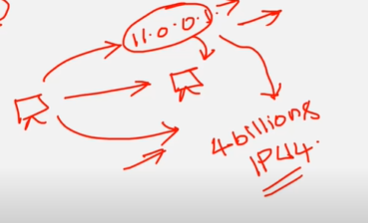 11.0.0.1
4billions
IPV4.